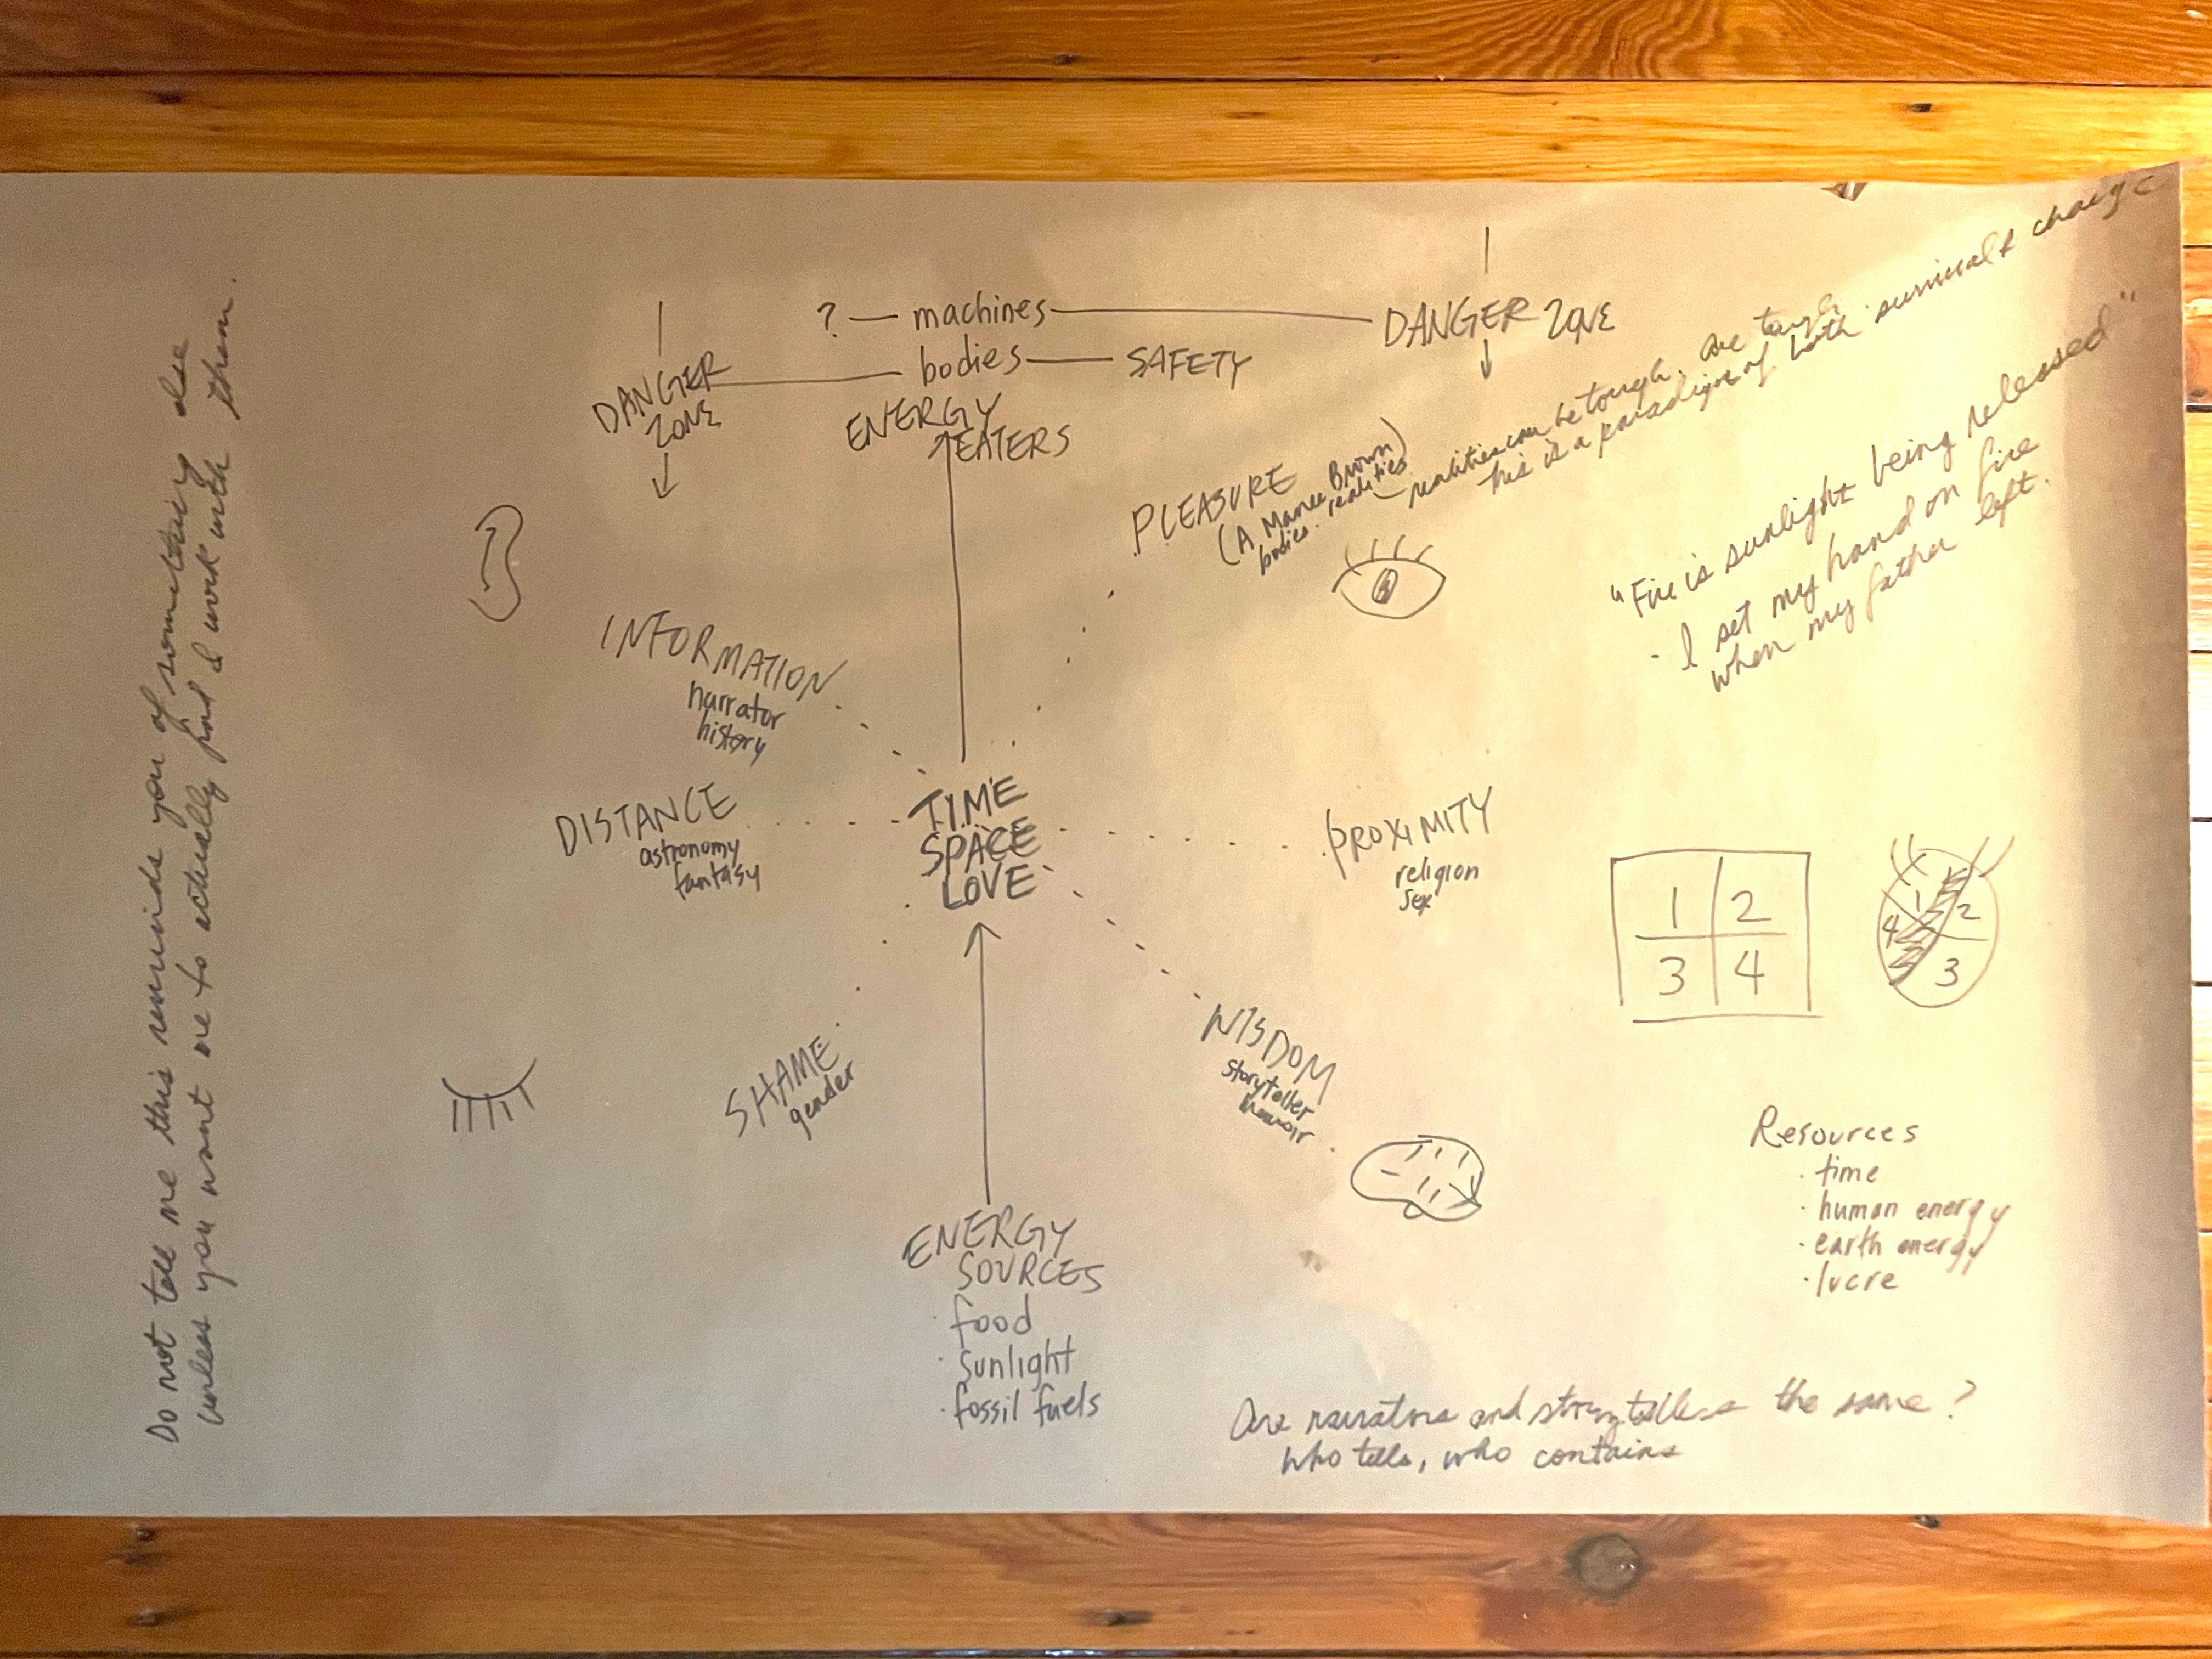 Do not tell me this reminds you of something else
unless you want me to actually find & work with them.
? — machines — DANGER ZONE
DANGER
ZONE
bodies — SAFETY
ENERGY
EATERS
PLEASURE
(A Maree Brown)
bodies. realities — realities can be tough. are tough.
this is a paradigm of both survival & change
"Fire is sunlight being released"
- I set my hand on fire
when my father left.
INFORMATION
narrator
history
DISTANCE
astronomy
fantasy
TIME
SPACE
LOVE
PROXIMITY
religion
sex
1 2
3 4
1 2
4 3
SHAME
gender
WISDOM
storyteller
memoir
ENERGY
SOURCES
· food
· sunlight
· fossil fuels
Resources
· time
· human energy
· earth energy
· lucre
Are narrators and storytellers the same?
who tells, who contains